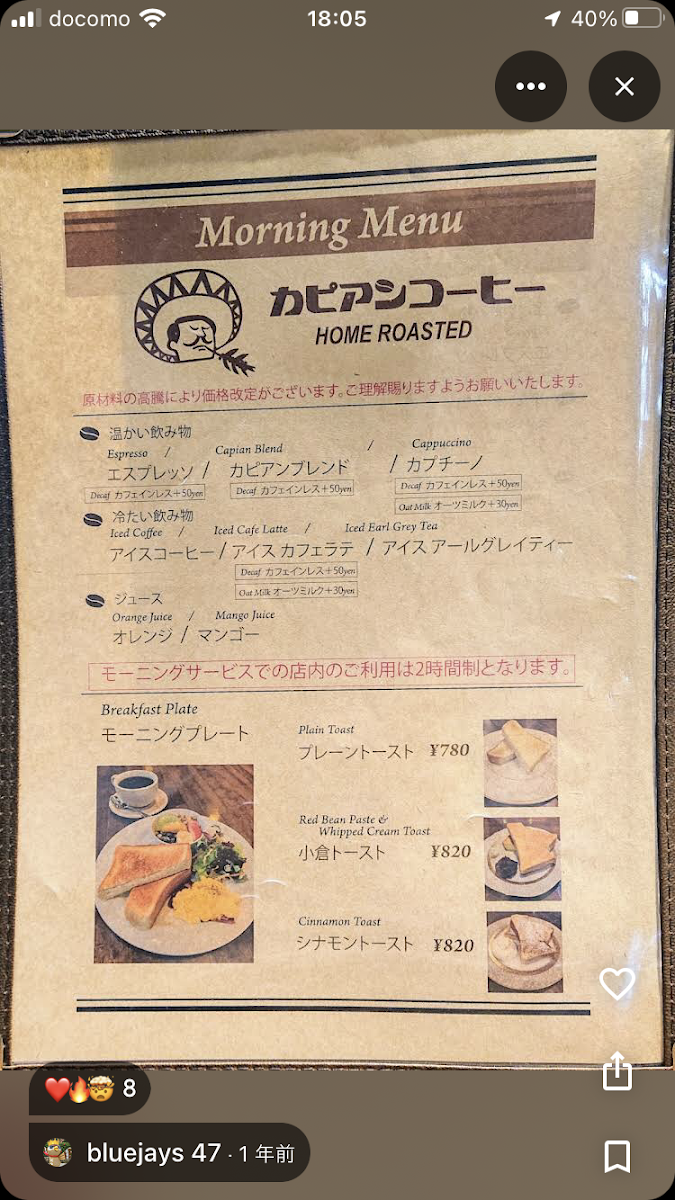 docomo 18:05 40%
Morning Menu
カピアンコーヒー
HOME ROASTED
原材料の高騰により価格改定がございます。ご理解賜りますようお願いいたします。
温かい飲み物
Espresso / Capian Blend / Cappuccino
エスプレッソ / カピアンブレンド / カプチーノ
Decaf カフェインレス+50yen Decaf カフェインレス+50yen Decaf カフェインレス+50yen
Oat Milk オーツミルク+30yen
冷たい飲み物
Iced Coffee / Iced Cafe Latte / Iced Earl Grey Tea
アイスコーヒー / アイス カフェラテ / アイス アールグレイティー
Decaf カフェインレス+50yen
Oat Milk オーツミルク+30yen
ジュース
Orange Juice / Mango Juice
オレンジ / マンゴー
モーニングサービスでの店内のご利用は2時間制となります。
Breakfast Plate
モーニングプレート
Plain Toast
プレーントースト ¥780
Red Bean Paste &
Whipped Cream Toast
小倉トースト ¥820
Cinnamon Toast
シナモントースト ¥820
8
bluejays 47 · 1 年前